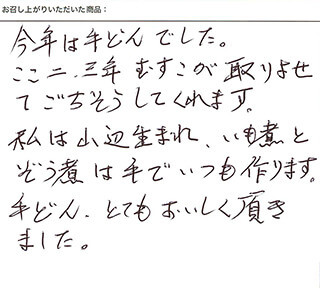 お召し上がりいただいた商品：
今年は手どんでした。
ここ二、三年むすこが取りよせ
てごちそうしてくれます。
私は山辺生まれ、いも煮と
ぞう煮は手でいつも作ります。
手どん、とてもおいしく頂き
ました。